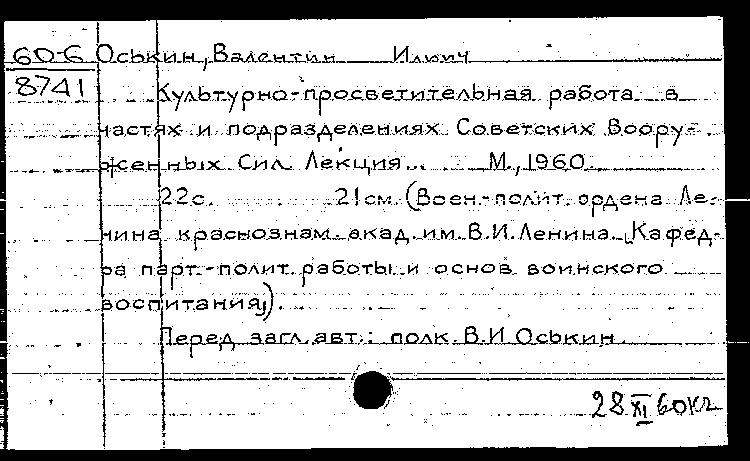 60-6 Оськин, Валентин Ильич
8741 Культурно-просветительная работа в
частях и подразделениях Советских Воору-
женных Сил. Лекция. М., 1960.
22с. 21см. (Воен.-полит. ордена Ле-
нина краснознам. акад. им. В.И. Ленина. Кафед-
ра парт.-полит. работы и основ воинского
воспитания).
Перед загл. авт.: полк. В.И Оськин.
28 XI 60кг